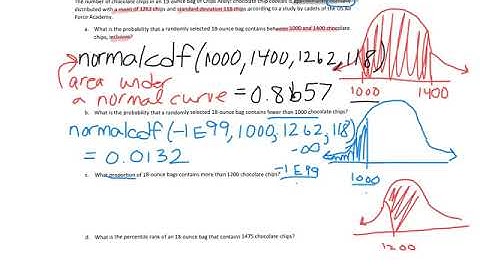 The number of chocolate chips in an 18-ounce bag of Chips Ahoy! chocolate chip cookies is approximately normally
distributed with a mean of 1262 chips and standard deviation 118 chips according to a study by cadets of the US Air
Force Academy.
a. What is the probability that a randomly selected 18-ounce bag contains between 1000 and 1400 chocolate
chips, inclusive?
normalcdf(1000,1400,1262,118)
area under
a normal curve = 0.8657
1000 1400
b. What is the probability that a randomly selected 18-ounce bag contains fewer than 1000 chocolate chips?
normalcdf(-1E99,1000,1262,118)
-∞
= 0.0132
-1E99
1000
c. What proportion of 18-ounce bags contains more than 1200 chocolate chips?
1200
d. What is the percentile rank of an 18-ounce bag that contains 1475 chocolate chips?